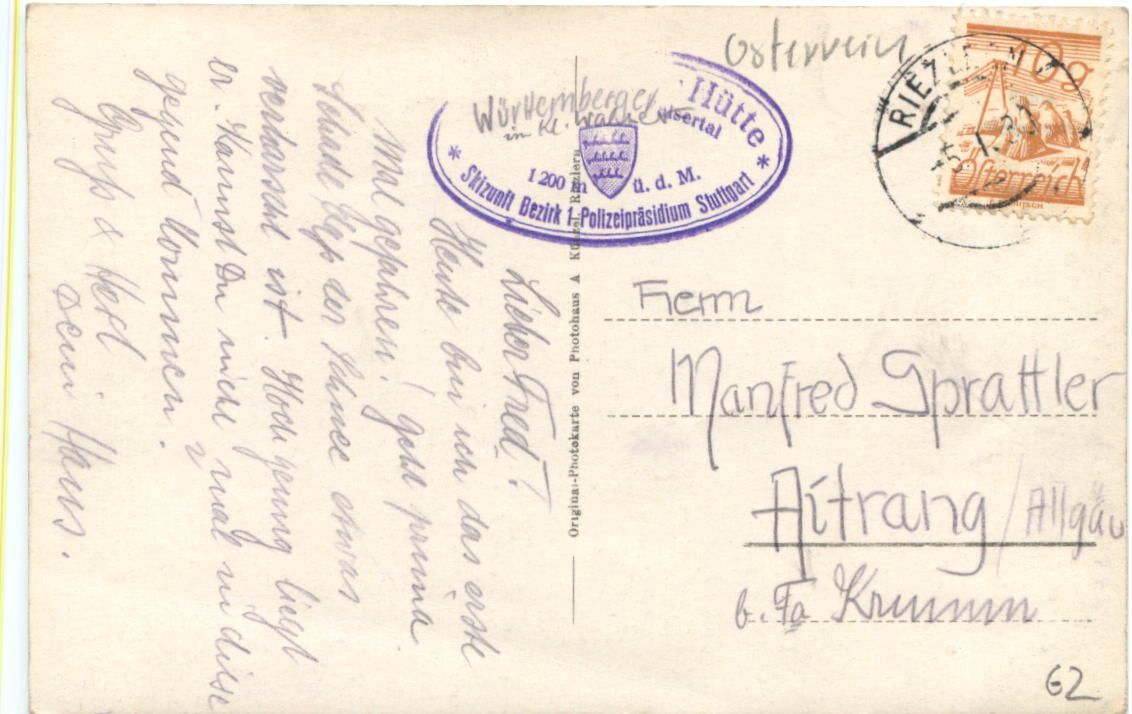 Osterreich
Hütte
Württemberger
in Kl. Walser
lsertal
1200 m ü. d. M.
* Skizunft Bezirk 1 Polizeipräsidium Stuttgart *
10g
Österreich
RIEZLERN
5.I.30
Lieber Fred!
Heute bin ich das erste
Mal gefahren. geht prima
Schade daß der Schnee etwas
verharscht ist. Hoch genug liegt
er. Kannst Du nicht mal in diese
gegend kommen.
Gruß & Heil
Dein Hans.
Original-Photokarte von Photohaus A Künzel, Riezlern
Herrn
Manfred Sprattler
Aitrang / Allgäu
b. Fa Krumm
62